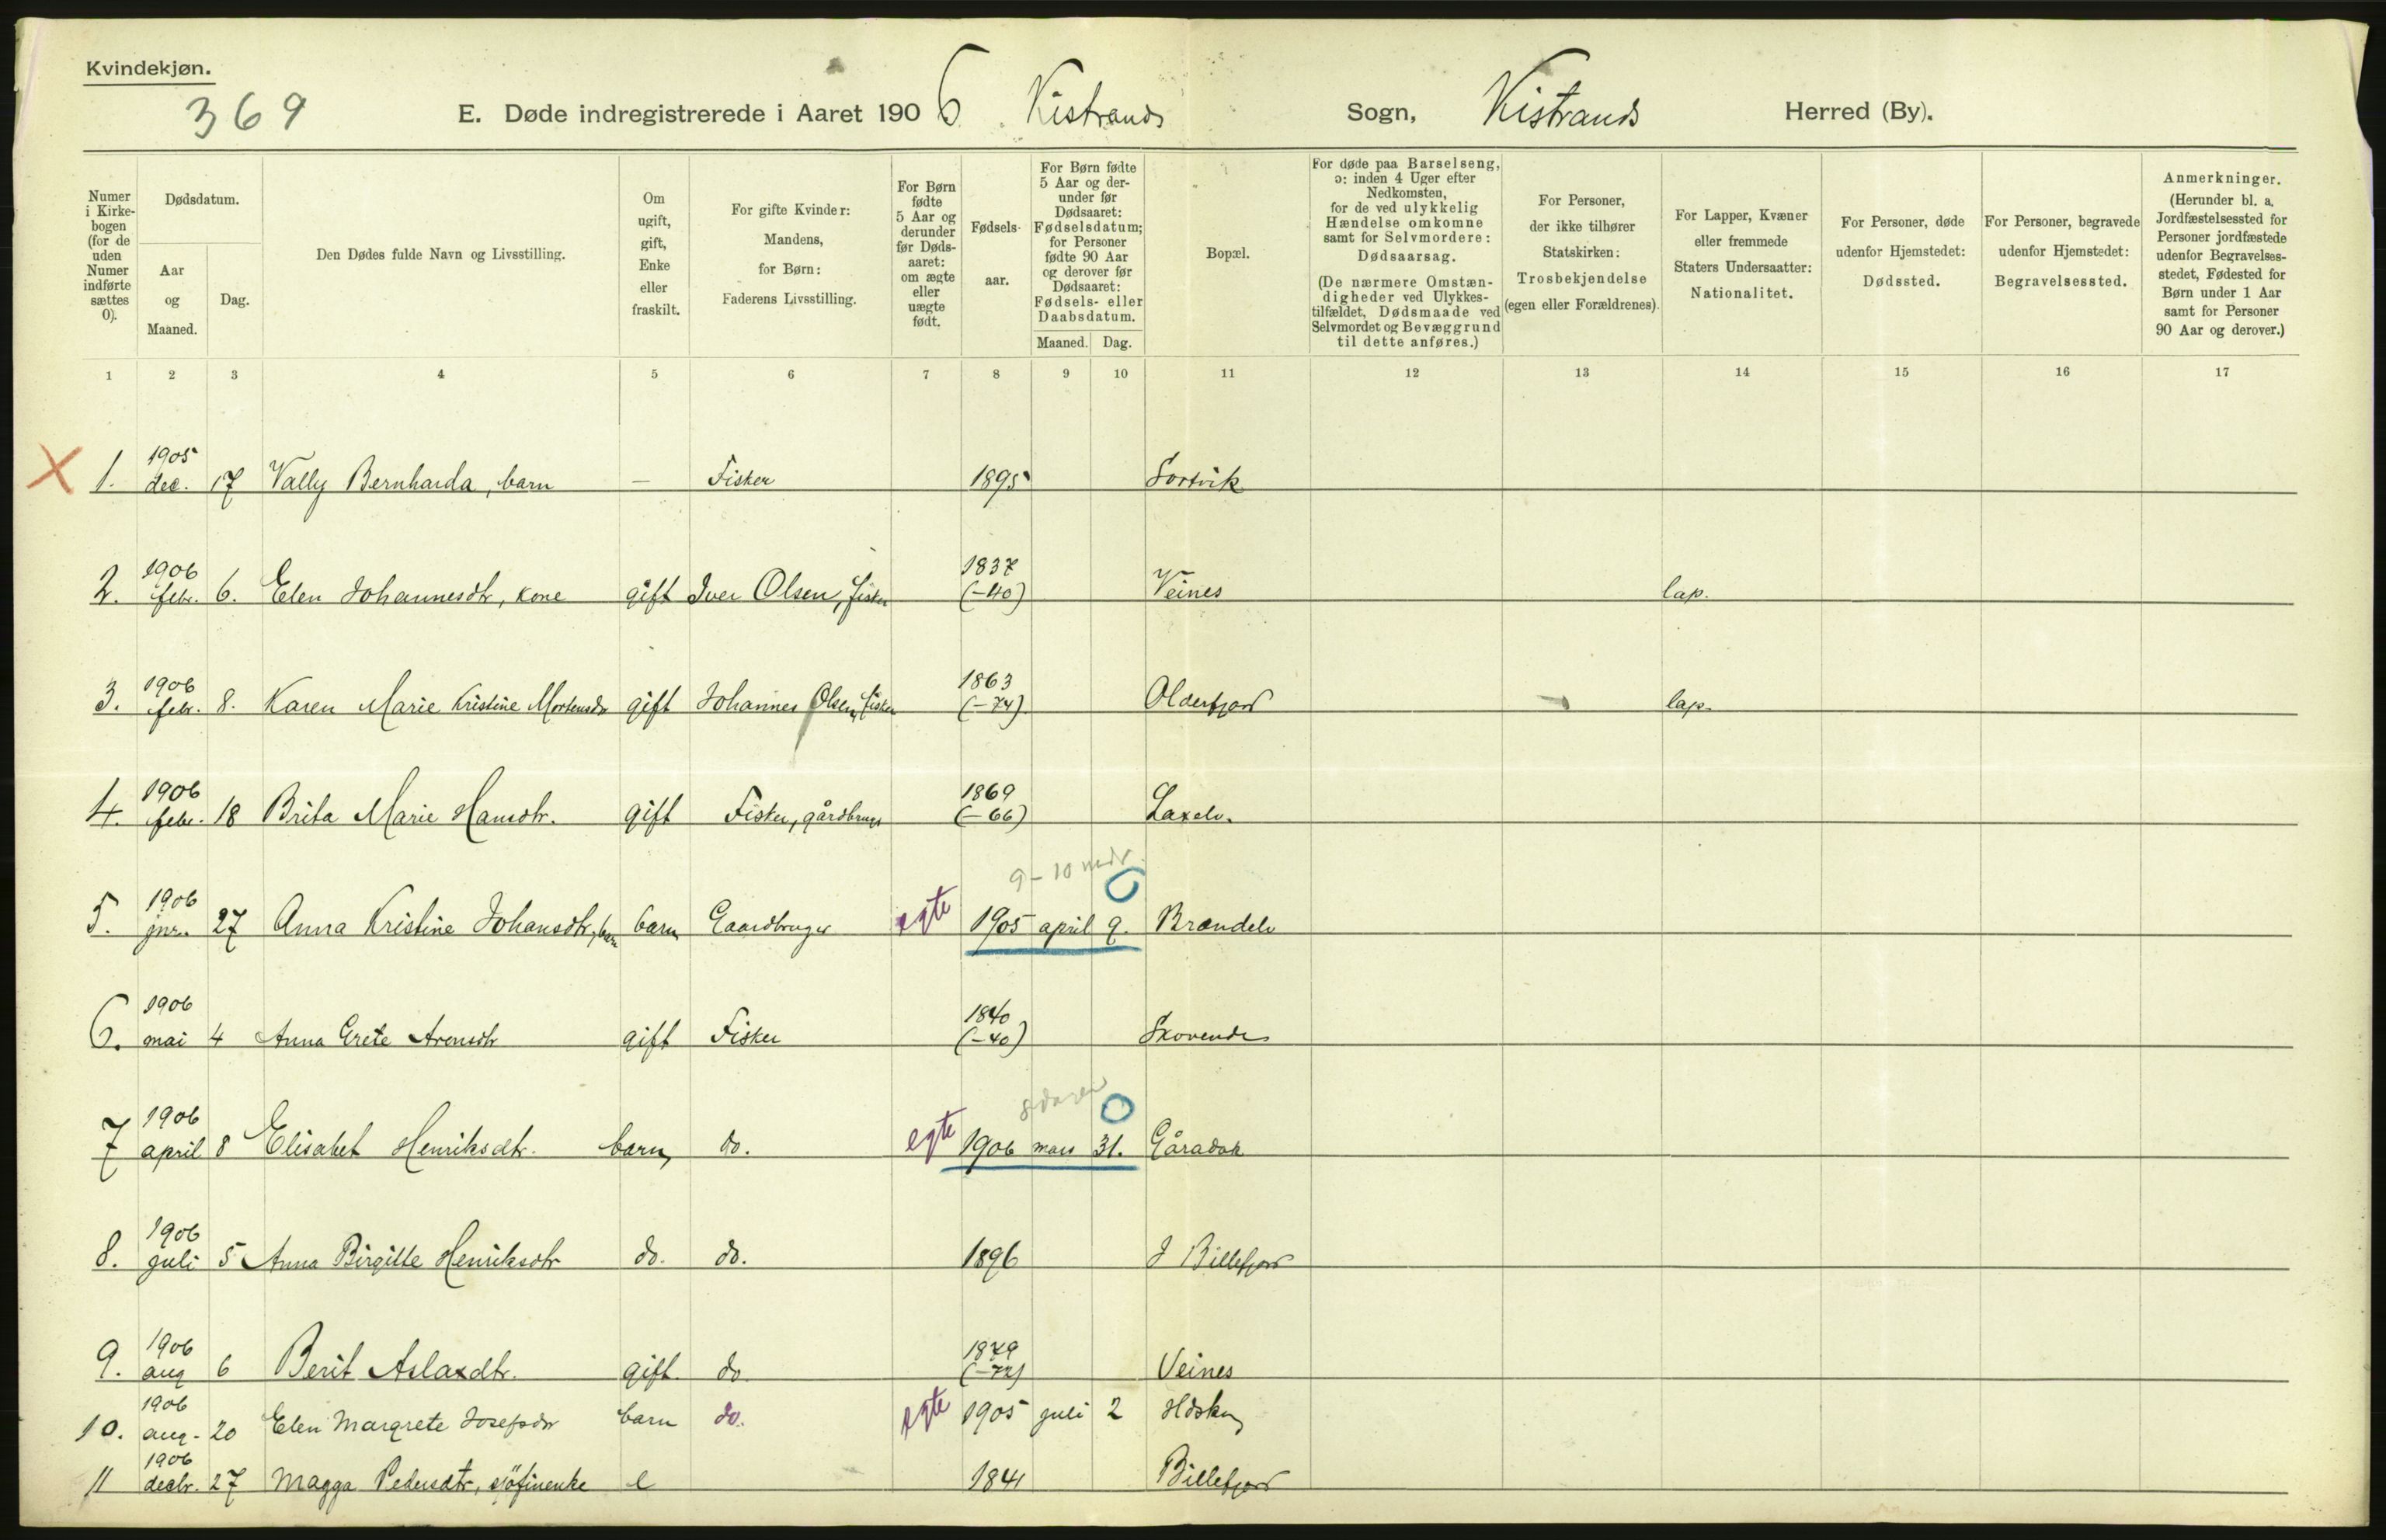 Kvindekjøn.
369
E. Døde indregistrerede i Aaret 1906 Kistrands Sogn, Kistrands Herred (By).
Numer i Kirkebogen (for de uden Numer indførte sættes 0).
Dødsdatum.
Aar og Maaned.
Dag.
Den Dødes fulde Navn og Livsstilling.
Om ugift, gift, Enke eller fraskilt.
For gifte Kvinder: Mandens, for Børn: Faderens Livsstilling.
For Børn fødte 5 Aar og derunder før Dødsaaret: om ægte eller uægte født.
Fødselsaar.
For Børn fødte 5 Aar og derunder før Dødsaaret: Fødselsdatum; for Personer fødte 90 Aar og derover før Dødsaaret: Fødsels- eller Daabsdatum.
Maaned. Dag.
Bopæl.
For døde paa Barselseng, ɔ: inden 4 Uger efter Nedkomsten, for de ved ulykkelig Hændelse omkomne samt for Selvmordere: Dødsaarsag.
(De nærmere Omstændigheder ved Ulykkestilfældet, Dødsmaade ved Selvmordet og Bevæggrund til dette anføres.)
For Personer, der ikke tilhører Statskirken: Trosbekjendelse (egen eller Forældrenes).
For Lapper, Kvæner eller fremmede Staters Undersaatter: Nationalitet.
For Personer, døde udenfor Hjemstedet: Dødssted.
For Personer, begravede udenfor Hjemstedet: Begravelsessted.
Anmerkninger. (Herunder bl. a. Jordfæstelsessted for Personer jordfæstede udenfor Begravelsesstedet, Fødested for Børn under 1 Aar samt for Personer 90 Aar og derover.)
1 2 3 4 5 6 7 8 9 10 11 12 13 14 15 16 17
X 1. 1905 dec. 17 Vally Bernharda, barn — Fisker 1895 Sortvik
2. 1906 febr. 6. Elen Johannesdtr, kone gift Iver Olsen, fisker 1837 (-40) Veines lap.
3. 1906 febr. 8. Karen Marie Kristine Mortensdr gift Johannes Olsen, fisker 1863 (-74) Olderfjord lap.
4. 1906 febr. 18 Brita Marie Hansdtr. gift Fisker, gårdbruger 1869 (-66) Laxelv.
9-10 mdr.
5. 1906 jnr. 27 Anna Kristine Johansdtr, barn barn Gaardbruger egte 1905 april 9. Brændelv
6. 1906 mai 4 Anna Grete Arensdtr gift Fisker 1840 (-40)
8 dager
7 1906 april 8 Elisabet Henriksdtr. barn, do. egte 1906 mars 31. Gåradak
8. 1906 juli 5 Anna Birgitte Henriksdtr do. do. 1896 I Billefjord
9. 1906 aug 6 Berit Aslaxdtr. gift. do 1849 (-72) Veines
10. 1906 aug. 20 Elen Margrete Josefsdr barn do. egte 1905 juli 2
11 1906 decbr. 27 Magga Pedersdtr, sjöfinenke e 1841 Billefjord